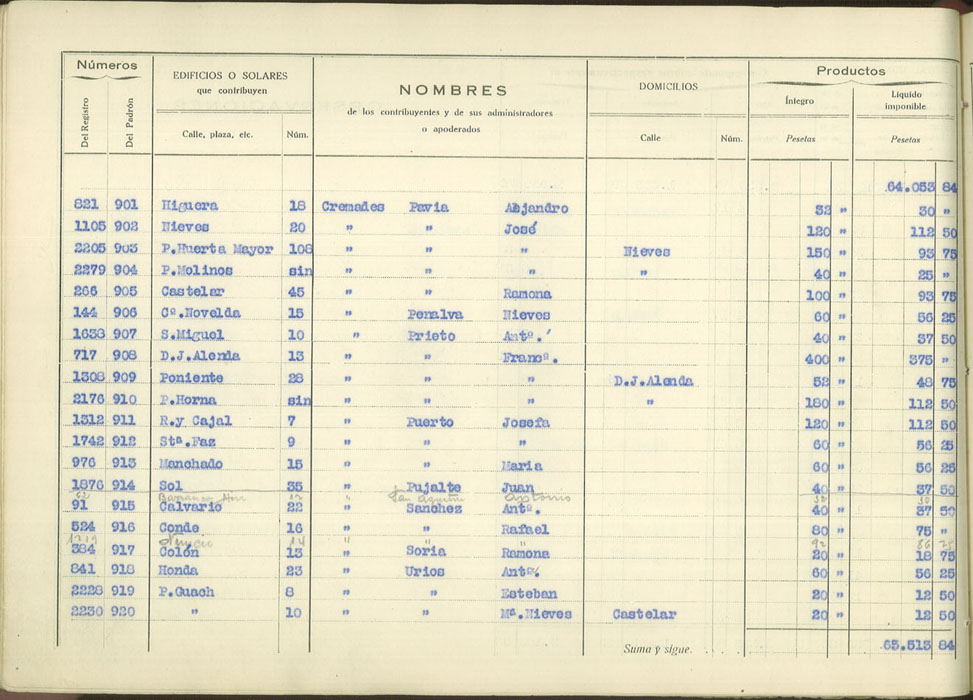 Números
EDIFICIOS O SOLARES
que contribuyen
NOMBRES
de los contribuyentes y de sus administradores
o apoderados
DOMICILIOS
Productos
Íntegro
Líquido
imponible
Del Registro
Del Padrón
Calle, plaza, etc.
Núm.
Calle
Núm.
Pesetas
Pesetas
64.053 84
821 901 Higuera 18 Cremades Pavia Alejandro 32 " 30 "
1105 902 Nieves 20 " " José 120 " 112 50
2205 903 P.Huerta Mayor 108 " " " Nieves 150 " 93 75
2279 904 P.Molinos sin " " " " 40 " 25 "
266 905 Castelar 45 " " Ramona 100 " 93 75
144 906 Cº.Novelda 15 " Penalva Nieves 60 " 56 25
1638 907 S.Miguel 10 " Prieto Antº. 40 " 37 50
717 908 D.J.Alenda 13 " " Francº. 400 " 375 "
1308 909 Poniente 28 " " " D.J.Alenda 52 " 48 75
2176 910 P.Horna sin " " " " 180 " 112 50
1312 911 R.y Cajal 7 " Puerto Josefa 120 " 112 50
1742 912 Stª.Faz 9 " " " 60 " 56 25
976 913 Manchado 15 " " Maria 60 " 56 25
1876 914 Sol 35 " Pujalte Juan 40 " 37 50
62 12 " Antonio
91 915 Calvario 22 " Sanchez Antº. 40 " 37 50
524 916 Conde 16 " " Rafael 80 " 75 "
14 " " "
384 917 Colón 13 " Soria Ramona 20 " 18 75
841 918 Honda 23 " Urios Antº. 60 " 56 25
2228 919 P.Guach 8 " " Esteban 20 " 12 50
2230 920 " 10 " " Mª.Nieves Castelar 20 " 12 50
Suma y sigue. . . . . 65.513 84